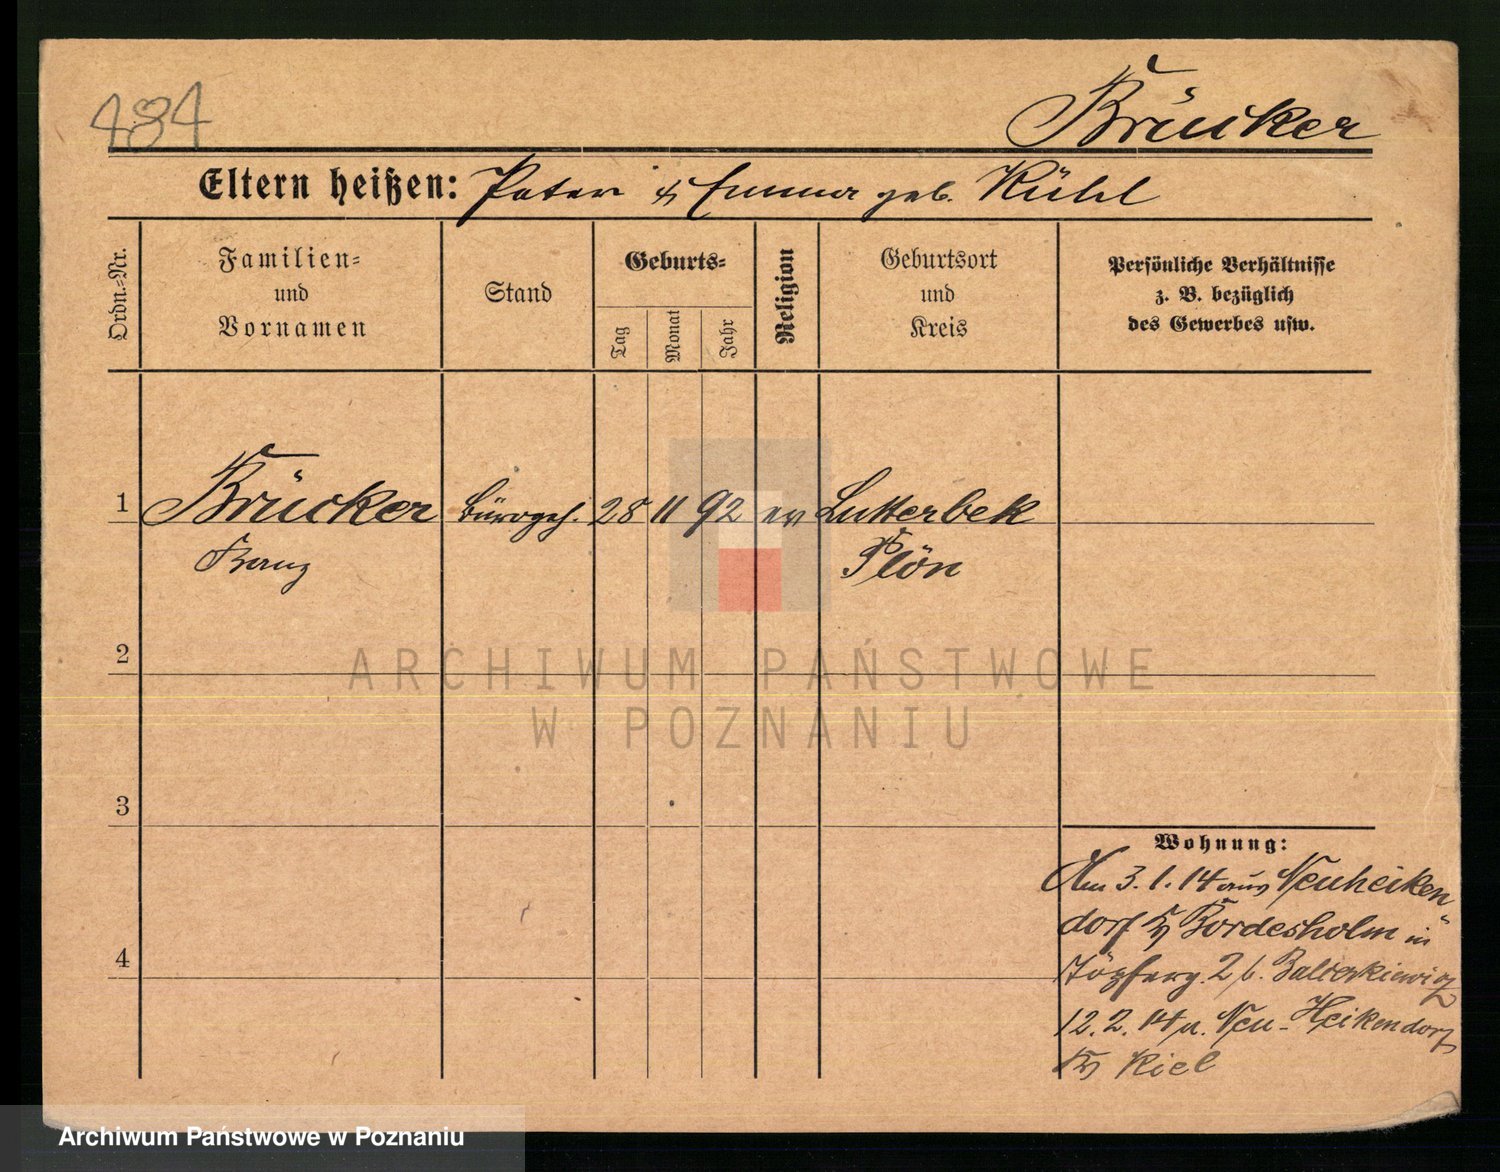 484
Brücker
Eltern heißen: Peter & Emma geb. Kühl
Ordn.=Nr.
Familien=
und
Vornamen
Stand
Geburts=
Tag
Monat
Jahr
Religion
Geburtsort
und
Kreis
Persönliche Verhältnisse
z. B. bezüglich
des Gewerbes usw.
1 Brücker Bürogeh. 28 11 92 ev Lutterbek
Franz Plön
2
3
4
Wohnung:
Am 3.1.14 aus Neuheiken
dorf Kr Bordesholm in
Töpferg. 2 b.
12.2.14 n. Neu-Heikendorf
Kr Kiel
ARCHIWUM PAŃSTWOWE
W POZNANIU
Archiwum Państwowe w Poznaniu